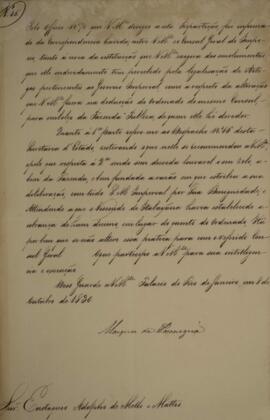 Nº 26
Pelo Officio Nº 7 que VM.ce dirigio a esta Repartição fui informado
da Correspondencia havida entre VM.ce e o Consul Geral do Imperio,
tanto a cerca da restituição que VM.ce exigira dos emolumentos
que elle indevidamente tem percebido pela legalisação de
pertencentes ao Governo Imperial, como a respeito da alteração
que VM.ce fizera na deducção do ordenado do mesmo Consul,
para embolso da Fazenda Publica de quem elle he devedor.
Quanto á 1ª parte refiro-me ao Despacho Nº 46 desta
Secretaria d'Estado, reiterando o que nelle se recommendou a VM.ce
e pelo que respeita á 2ª onde sem duvida louvavel o seu zelo a
bem da Fazenda, e bem fundada a razão em que estribou a sua
deliberação, com tudo S. M. o Imperador por Sua Benignidade, e
Attendendo a que o Visconde de Itabayana havia estabelecido a
cobrança de huma decima em lugar do quinto do ordenado, Ha
por bem que se não altere essa pratica para com o referido Con-
sul Geral. O que participo a VM.ce para sua intelligen-
cia e execução.
Deos Guarde a VM.ce Palacio do Rio de Janeiro, em 8 de
Outubro de 1830
Marquez de Paranaguá
Snr. Eustaquio Adolpho de Mello e Mattos